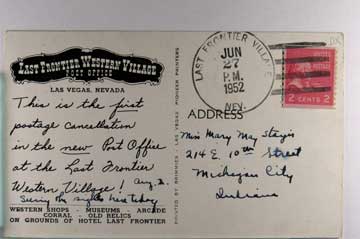 LAST FRONTIER WESTERN VILLAGE
POST OFFICE
LAS VEGAS, NEVADA
This is the first
postage cancellation
in the new Post Office
at the Last Frontier
Western Village! Aug. 2
Seeing the sights here today
WESTERN SHOPS - MUSEUMS - ARCADE
CORRAL - OLD RELICS
ON GROUNDS OF HOTEL LAST FRONTIER
PRINTED BY BRIMMIES - LAS VEGAS PIONEER PRINTERS
LAST FRONTIER VILLAGE
JUN
27
P.M.
1952
NEV.
2 CENTS 2
ADDRESS
Miss Mary May
214 E. 10th Street
Michigan City
Indiana